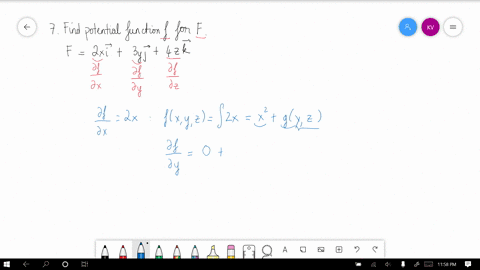 7. Find potential function f for F.
F = 2xi⃗ + 3yj⃗ + 4zk⃗
∂f/∂x ∂f/∂y ∂f/∂z
∂f/∂x = 2x : f(x,y,z) = ∫2x = x² + g(y,z)
∂f/∂y = 0 +
KV
11:58 PM